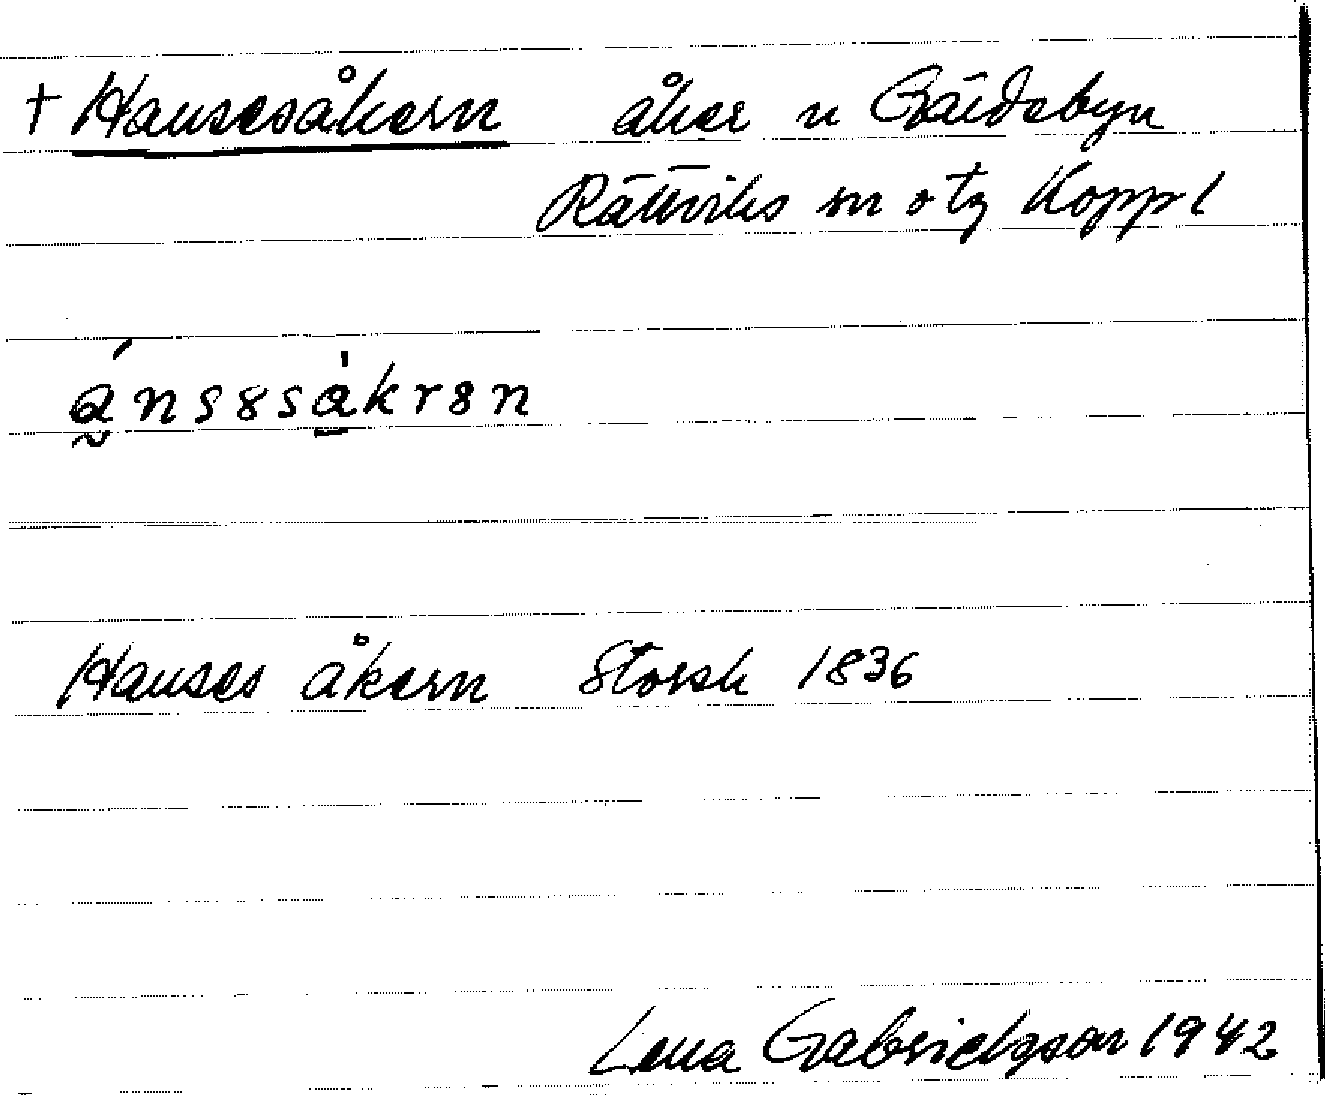 † Hansesåkern åker n Gärdebyn
Rättviks sn o tg Koppl
ánsɘsàkrɘn
Hanses åkern Storsk 1836
Lena Gabrielsson 1942